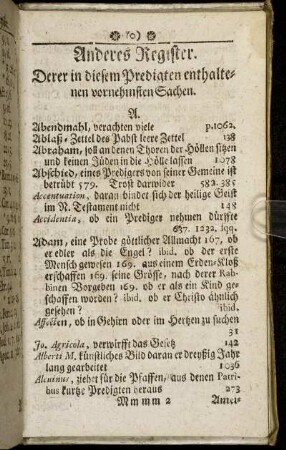 (o)
Anderes Register.
Derer in diesem Predigten enthalte-
nen vornehmsten Sachen.
A.
Abendmahl, verachten viele p.1062.
Ablaß-Zettel des Pabst leere Zettel 138
Abraham, soll an denen Thoren der Höllen sitzen
und keinen Jüden in die Hölle lassen 1078
Abschied, eines Predigers von seiner Gemeine ist
betrübt 579. Trost darwider 582.385
Accentuation, daran bindet sich der heilige Geist
im N. Testament nicht 148
Accidentia, ob ein Prediger nehmen dürffte
637. 1232. sqq.
Adam, eine Probe göttlicher Allmacht 167, ob
er edler als die Engel? ibid. ob der erste
Mensch gewesen 169. aus einem Erden-Kloß
erschaffen 169. seine Grösse, nach derer Rab-
binen Vorgeben 169. ob er als ein Kind ge-
schaffen worden? ibid. ob er Christo ähnlich
gesehen? ibid.
Affecten, ob in Gehirn oder im Hertzen zu suchen
31
Jo. Agricola, verwirfft das Gesetz 142
Alberti M. künstliches Bild daran er dreyßig Jahr
lang gearbeitet 1036
Alcuinus, ziehet für die Pfaffen, aus denen Patri-
bus kurtze Predigten heraus 273
Mmmm 2 Amei-